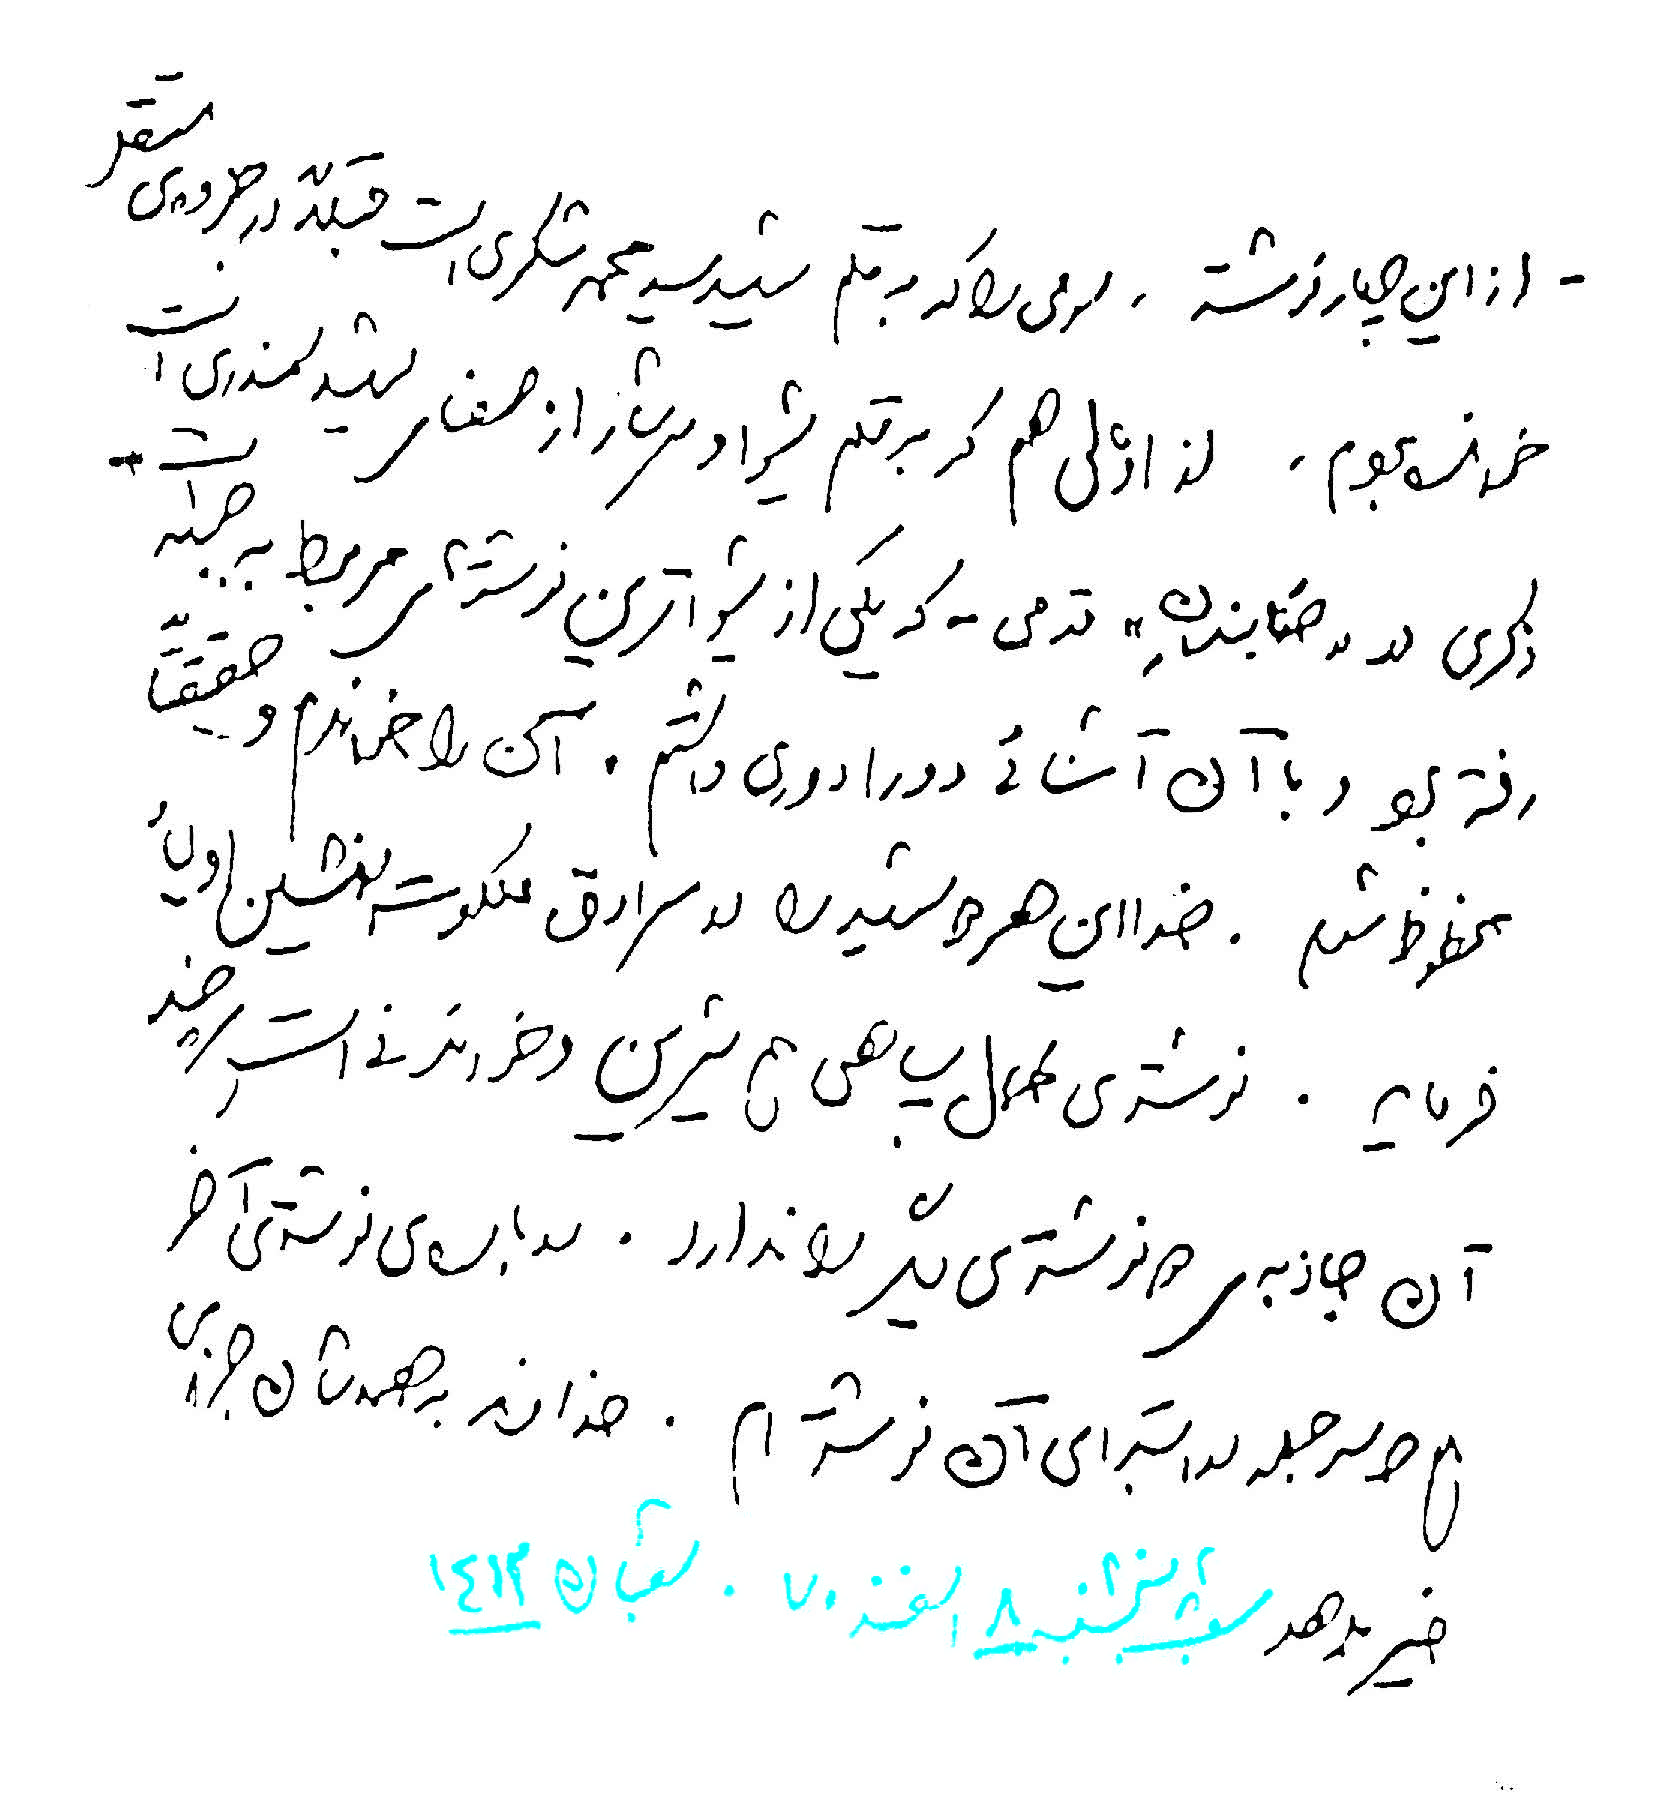 - از این چهار نوشته، سومی را که به قلم شهید سید محمد شکری است قبلاً در جزوه‌ی مستقلی
خوانده بودم، از اوّلی هم که به قلم شیوا و سرشار از صفای شهید سمندری است
ذکری در «حنابندان» قدمی - که یکی از شیواترین نوشته‌های مربوط به جبهه است -
رفته بود و با آن آشنائی دورادوری داشتم. آن را خواندم و حقیقتاً
محظوظ شدم. خدا این هر دو شهید را در سرادق ملکوت همنشین اولیائش
فرماید. نوشته‌ی طحال پناهی هم شیرین و خواندنی است هر چند
آن جاذبه‌ی دو نوشته‌ی دیگر را ندارد. درباره‌ی نوشته‌ی آخر
هم دو سه جمله در ابتدای آن نوشته‌ام. خداوند به همه‌شان جزای
خیر بدهد شب پنجشنبه ۸ اسفند ۷۰. شعبان ۱۴۱۲